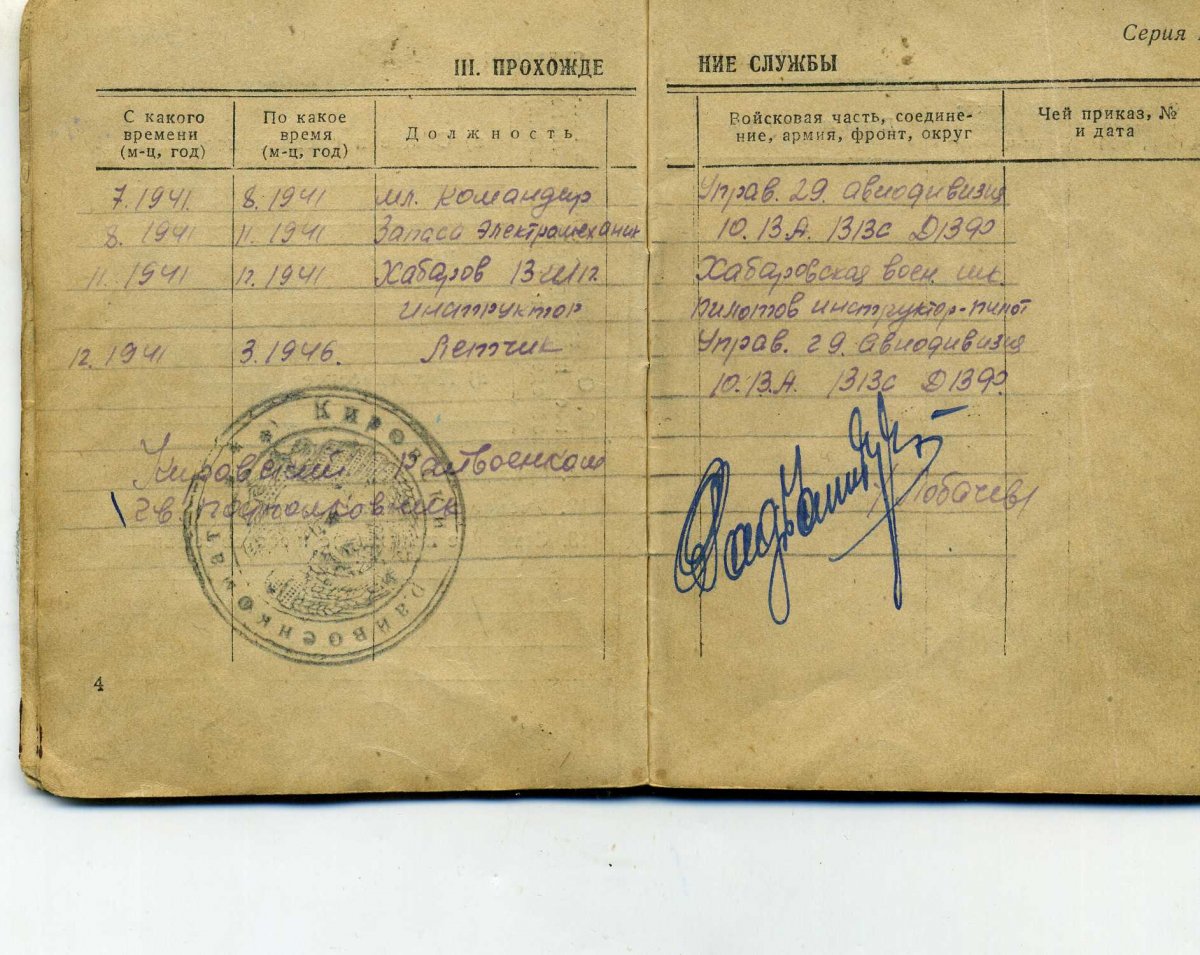 Серия
III. ПРОХОЖДЕ НИЕ СЛУЖБЫ
С какого времени (м-ц, год)
По какое время (м-ц, год)
Должность
Войсковая часть, соедине-
ние, армия, фронт, округ
Чей приказ, №
и дата
7.1941 8.1941 мл. командир Управ. 29. авиодивизия
8. 1941 11. 1941 Запаса электромеханик 10. В.А. ВВС ДВФ
11. 1941 12. 1941 Хабаров Вшп. Хабаровская воен. шк.
инструктор пилотов инструктор-пилот
12. 1941 3.1946. Летчик Управ. 29. авиодивизия
10. В.А. ВВС ДВФ
Кировский Райвоенком
гв. подполковник /Лобачев/
Кировский Райвоенкомат
4